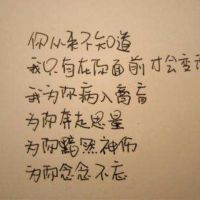 你从来不知道
我只有在你面前才会变
我为你病入膏肓
为你奔走思量
为你黯然神伤
为你念念不忘